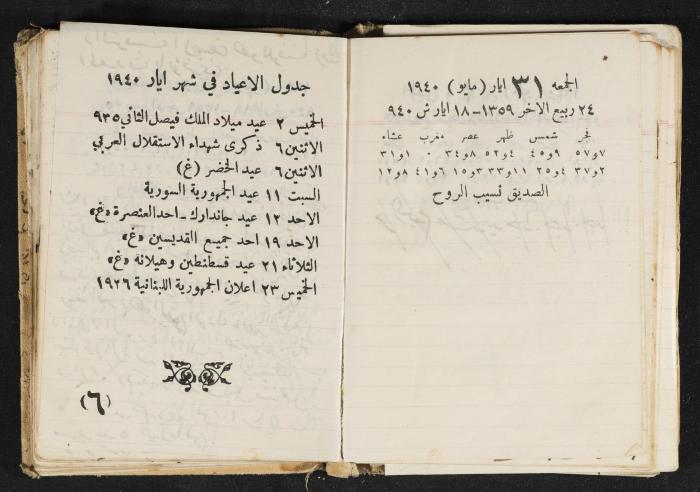 الجمعه ٣١ ايار (مايو) ١٩٤٠
٢٤ ربيع الاخر ١٣٥٩-١٨ ايار ش ٩٤٠
فجر شمس ظهر عصر مغرب عشاء
٧و٥٧ ٩و٤٥ ٤و٥٢ ٨و٣٤ ٠ ١و٣١
٢و٣٧ ٤و٢٥ ١١و٣٣ ٣و١٥ ٦و٤١ ٨و١٢
الصديق نسيب الروح
جدول الاعياد في شهر ايار ١٩٤٠
الخميس ٢ عيد ميلاد الملك فيصل الثاني ٩٣٥
الاثنين ٦ ذكرى شهداء الاستقلال العربي
الاثنين ٦ عيد الخضر (غ)
السبت ١١ عيد الجمهورية السورية
الاحد ١٢ عيد جاندارك - احد العنصرة «غ»
الاحد ١٩ احد جميع القديسين «غ»
الثلاثاء ٢١ عيد قسطنطين وهيلانه «غ»
الخميس ٢٣ اعلان الجمهورية اللبنانية ١٩٢٦
(٦)